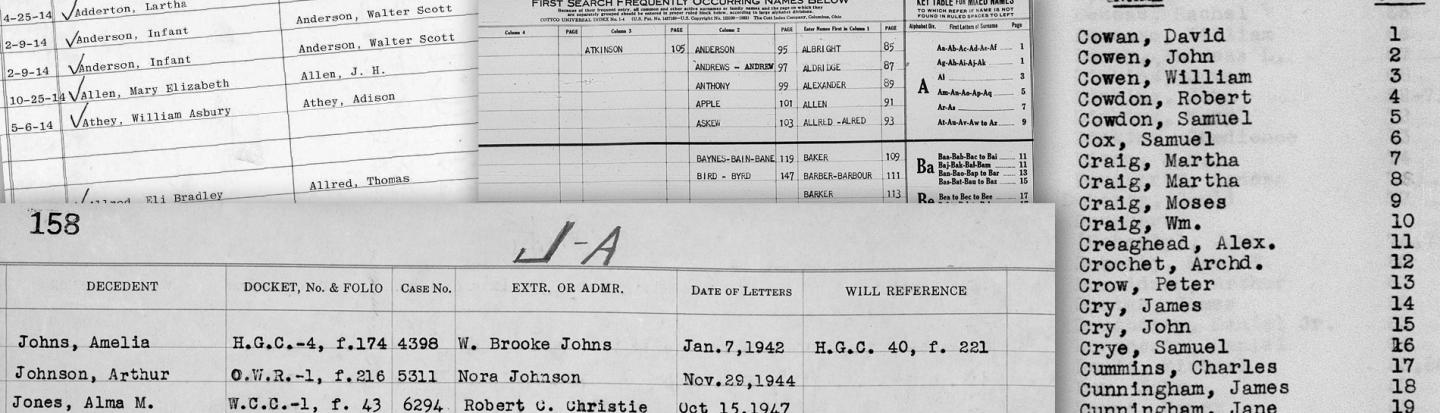 Adderton, Lartha
4-25-14
Anderson, Walter Scott
2-9-14 Anderson, Infant
Anderson, Walter Scott
2-9-14 Anderson, Infant
Allen, J. H.
10-25-14 Allen, Mary Elizabeth
Athey, Adison
5-6-14 Athey, William Asbury
Allred, Thomas
Eli Bradley
FIRST SEARCH FREQUENTLY OCCURRING NAMES BELOW
Column 4 PAGE Column 3 PAGE Column 2 PAGE Enter Names First in Column 1 PAGE
ATKINSON 105 ANDERSON 95 ALBRIGHT 85
ANDREWS - ANDREW 97 ALDRIDGE 87
ANTHONY 99 ALEXANDER 89
APPLE 101 ALLEN 91
ASKEW 103 ALLRED -ALRED 93
BAYNES-BAIN-BANE 119 BAKER 109
BIRD - BYRD 147 BARBER-BARBOUR 111
BARKER 113
KEY TABLE FOR MIXED NAMES
TO WHICH REFER IF NAME IS NOT
FOUND IN RULED SPACES TO LEFT
Alphabet Div. First Letters of Surname Page
A
Aa-Ab-Ac-Ad-Ae-Af 1
Ag-Ah-Ai-Aj-Ak 1
Al 3
Am-An-Ao-Ap-Aq 5
Ar-As 7
At-Au-Av-Aw to Az 9
Ba
Baa-Bab-Bac to Bai 11
Baj-Bak-Bal-Bam 11
Ban-Bao-Bap to Bar 13
Bas-Bat-Bau to Baz 15
Be
Bea to Bec to Bee 17
158
J-A
DECEDENT DOCKET, No. & FOLIO CASE No. EXTR. OR ADMR. DATE OF LETTERS WILL REFERENCE
Johns, Amelia H.G.C.-4, f.174 4398 W. Brooke Johns Jan.7,1942 H.G.C. 40, f. 221
Johnson, Arthur O.W.R.-1, f.216 5311 Nora Johnson Nov.29,1944
Jones, Alma M. W.C.C.-1, f. 43 6294 Robert C. Christie Oct 15,1947
Cowan, David 1
Cowen, John 2
Cowen, William 3
Cowdon, Robert 4
Cowdon, Samuel 5
Cox, Samuel 6
Craig, Martha 7
Craig, Martha 8
Craig, Moses 9
Craig, Wm. 10
Creaghead, Alex. 11
Crochet, Archd. 12
Crow, Peter 13
Cry, James 14
Cry, John 15
Crye, Samuel 16
Cummins, Charles 17
Cunningham, James 18
Cunningham, Jane 19